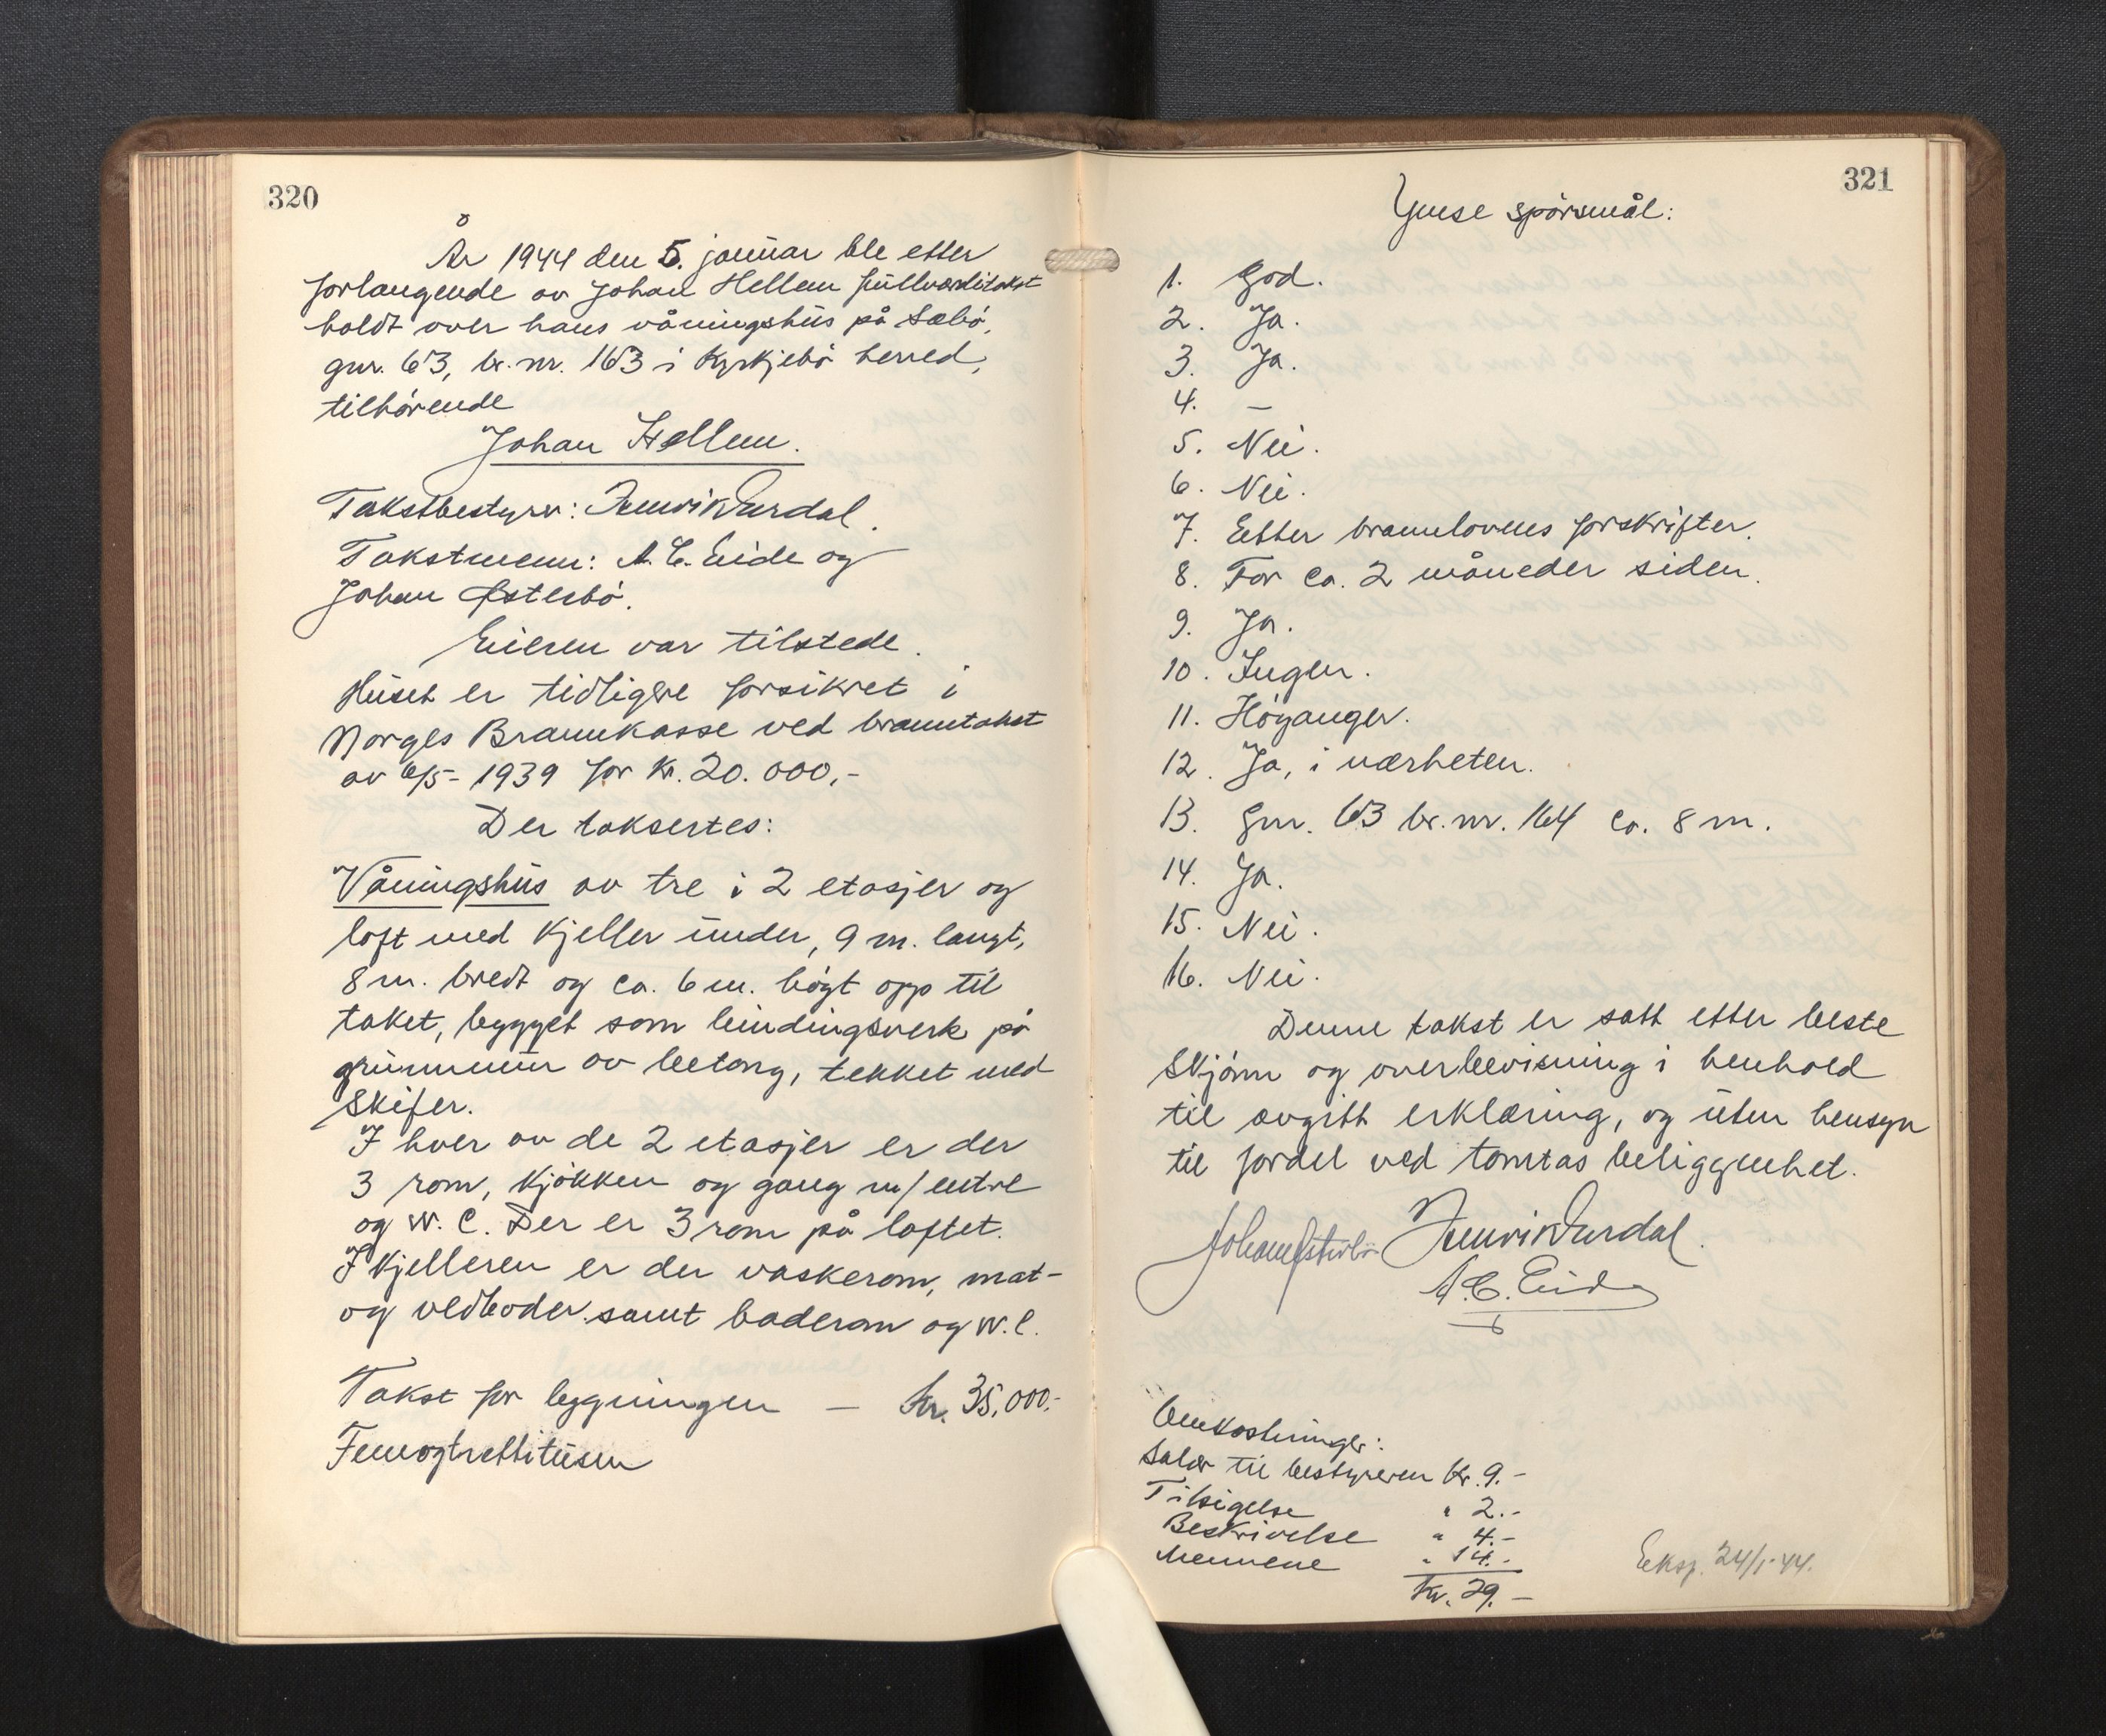 320
År 1944 den 5. januar ble etter
forlangende av Johan Hellem fullverditakst
holdt over hans våningshus på Sæbø,
gnr. 63, br. nr. 163 i Kyrkjebø herred,
tilhørende
Johan Hellem.
Takstbestyrer: Henrik Vardal.
Takstmenn: A. C. Eide og
Johan Østerbø.
Eieren var tilstede.
Huset er tidligere forsikret i
Norges Brannkasse ved branntakst
av 6/5- 1939 for kr. 20.000,-
Der taksertes:
Våningshus av tre i 2 etasjer og
loft med kjeller under, 9 m. langt,
8 m. bredt og ca. 6 m. høgt opp til
taket, bygget som bindingsverk på
grunnmur av betong, tekket med
skifer.
I hver av de 2 etasjer er der
3 rom, kjøkken og gang m/entre
og W. C. Der er 3 rom på loftet.
I kjelleren er der vaskerom, mat-
og vedboder samt baderom og W.C.
Takst for bygningen – kr. 35.000.-
Femogtrettitusen
321
Ymse spørsmål:
1. God.
2. Ja.
3. Ja.
4. –
5. Nei.
6. Nei.
7. Etter brannlovens forskrifter.
8. For ca. 2 måneder siden.
9. Ja.
10. Ingen.
11. Høyanger.
12. Ja, i nærheten.
13. Gnr. 63 br. nr. 164 ca. 8 m.
14. Ja.
15. Nei.
16. Nei.
Denne takst er satt etter beste
skjønn og overbevisning i henhold
til avgitt erklæring, og uten hensyn
til fordel ved tomtas beliggenhet.
Johan Østerbø Henrik Vardal.
A. C. Eide
Omkostninger:
Salær til bestyreren kr. 9.-
Tilsigelse " 2.-
Beskrivelse " 4.-
Mennene " 14.-
Kr. 29.-
Eksp. 24/1-44.